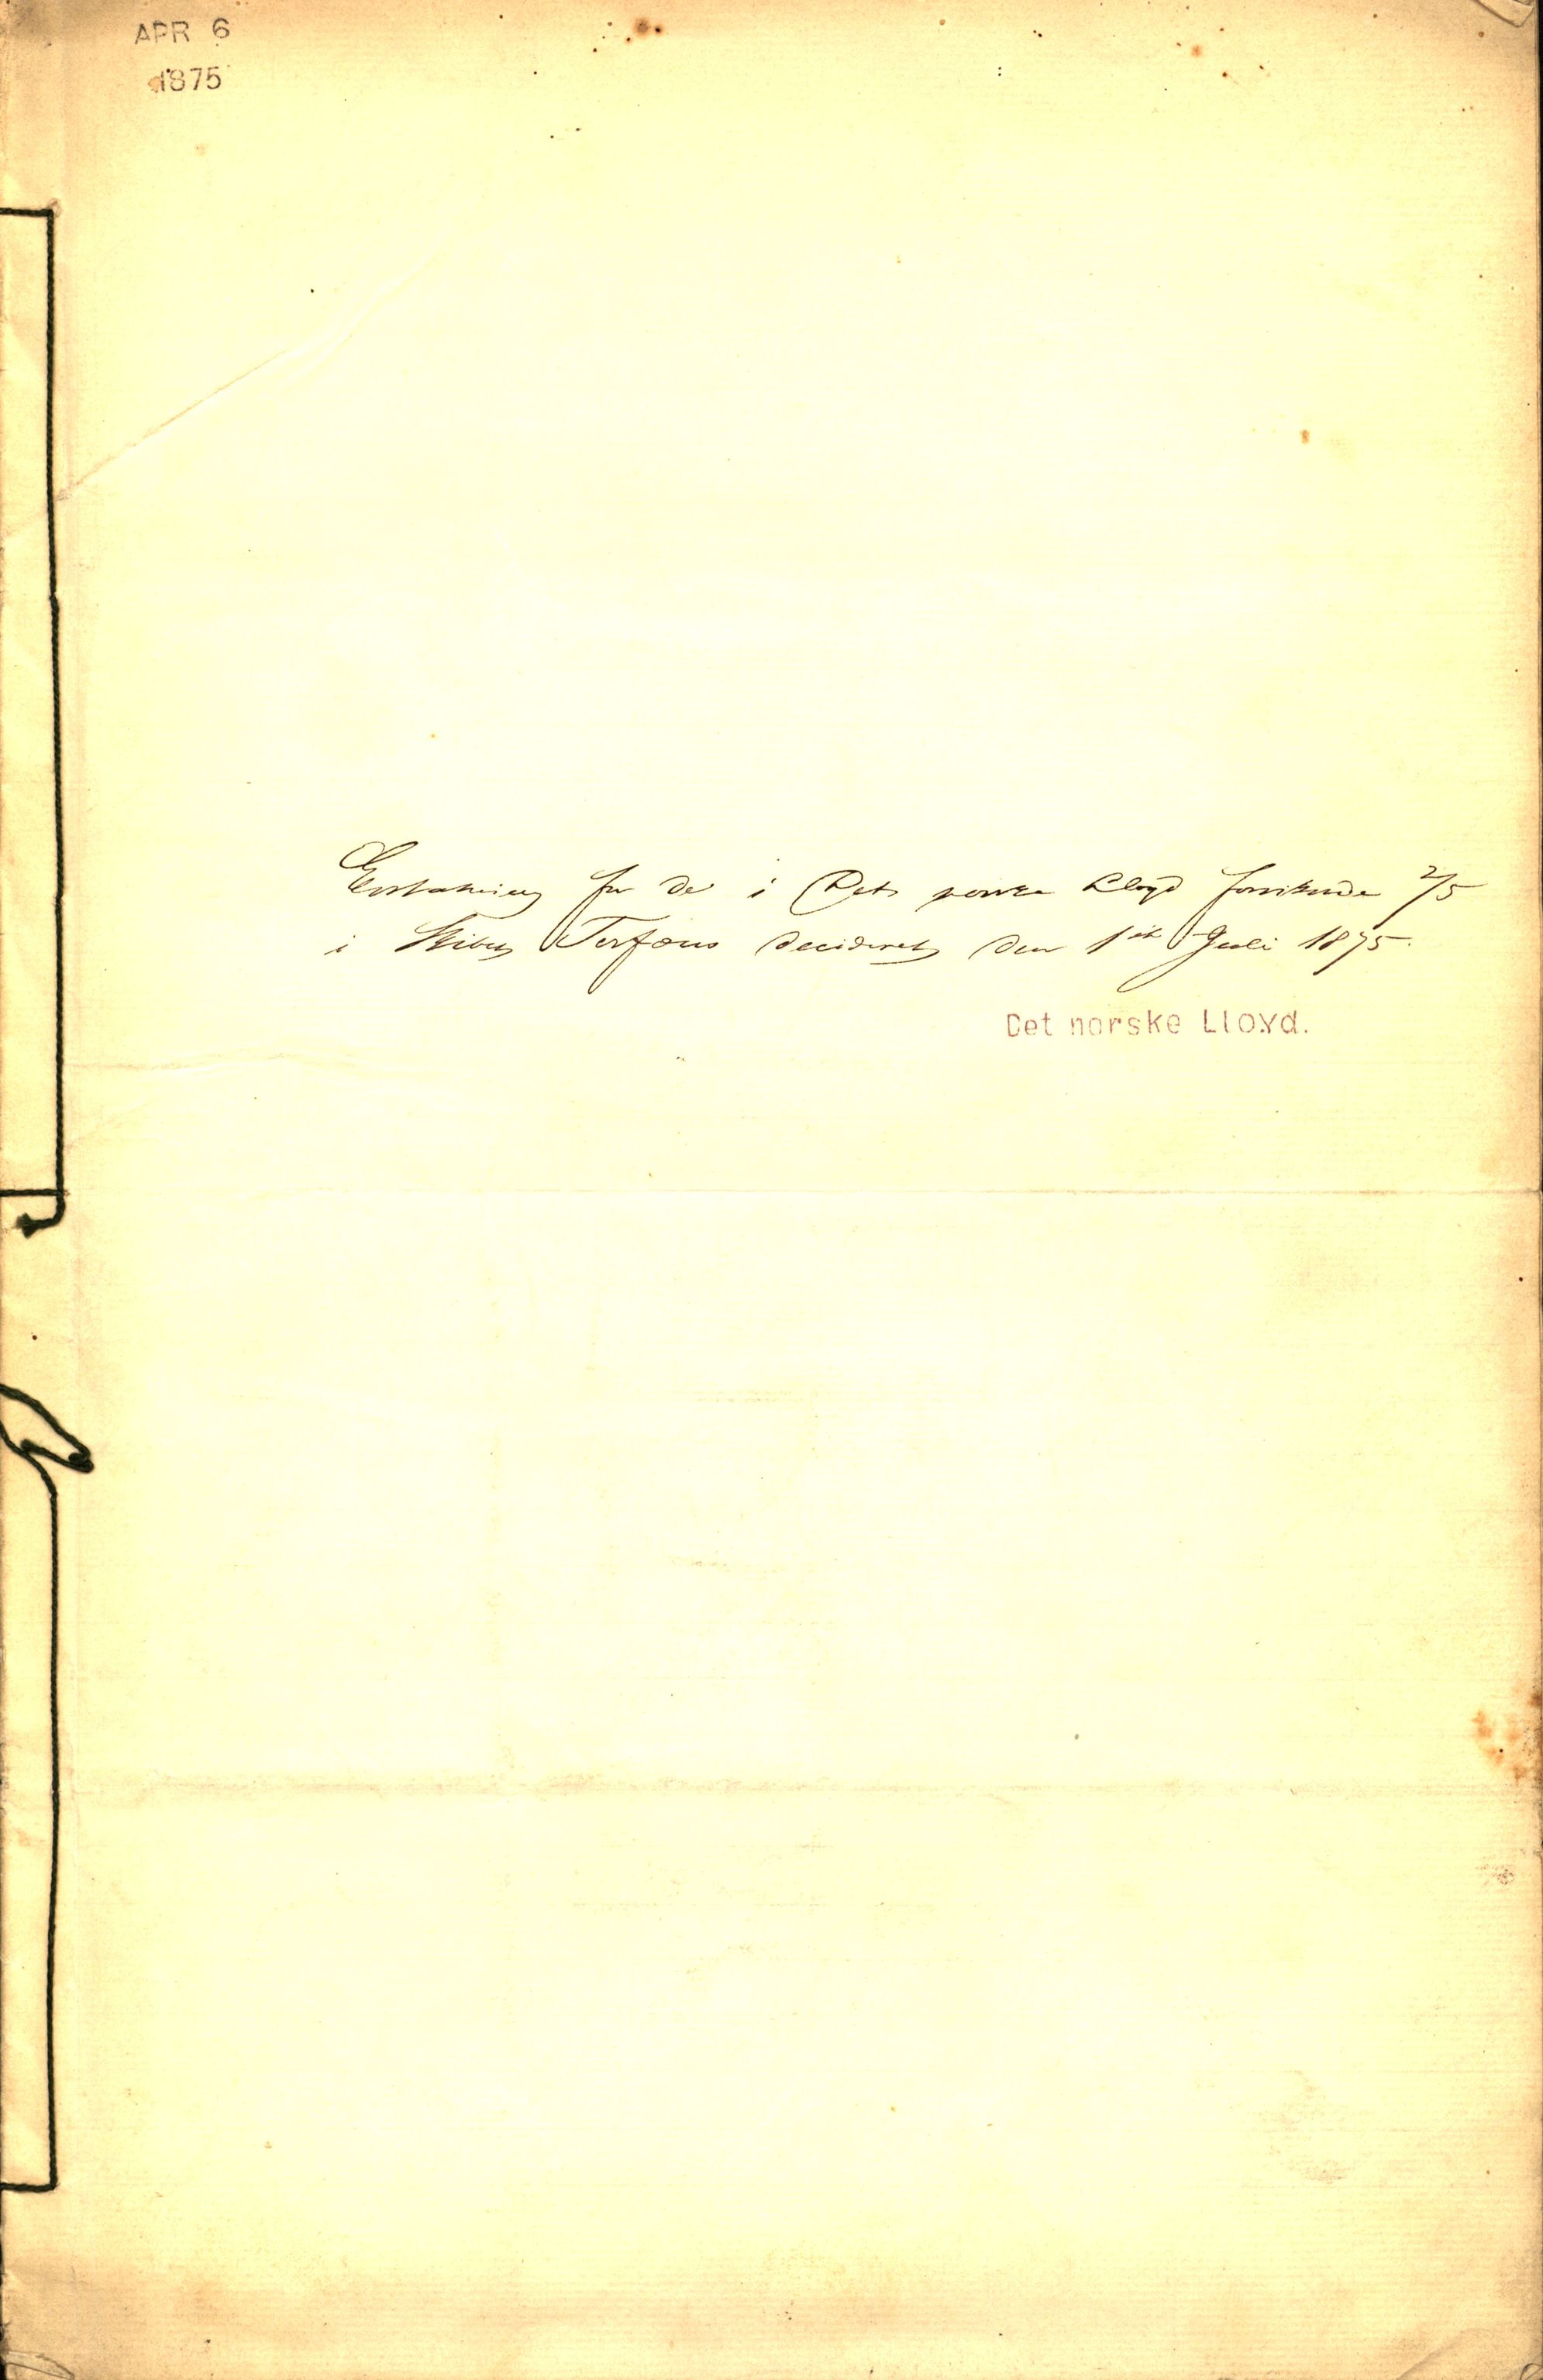 APR 6
1875
Erstatning for de i Det norske Lloyd forsikrede 2/5
i Skibet Torfæus decideret den 1ste Juli 1875.
Det norske Lloyd.